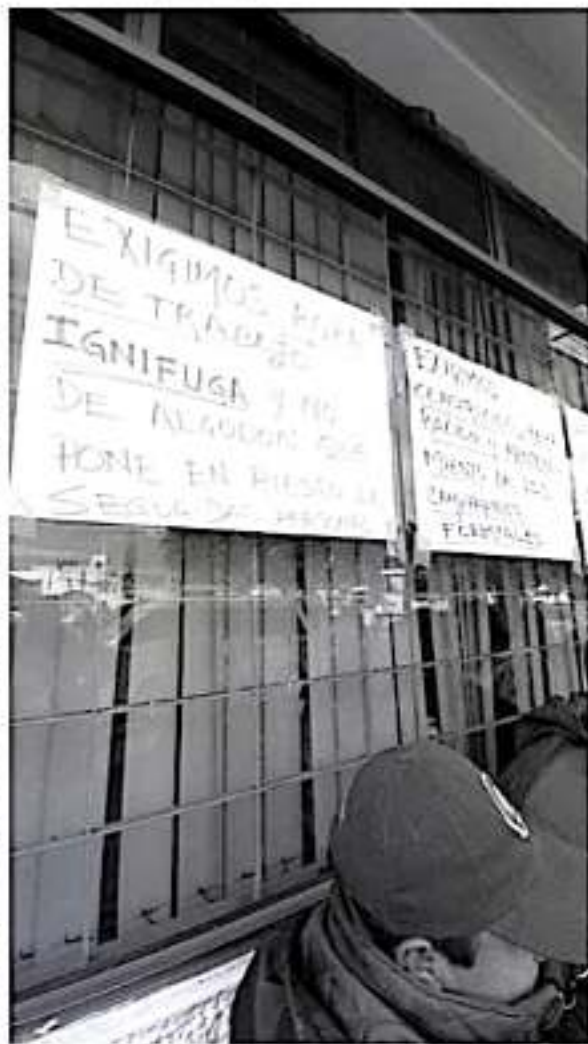 EXIGIMOS ROPA
DE TRABAJO
IGNIFUGA Y NO
DE ALGODON QUE
PONE EN RIESGO LA
SEGURIDAD PERSONAL
EXIGIMOS
MIENTO DE LOS
FORESTALES